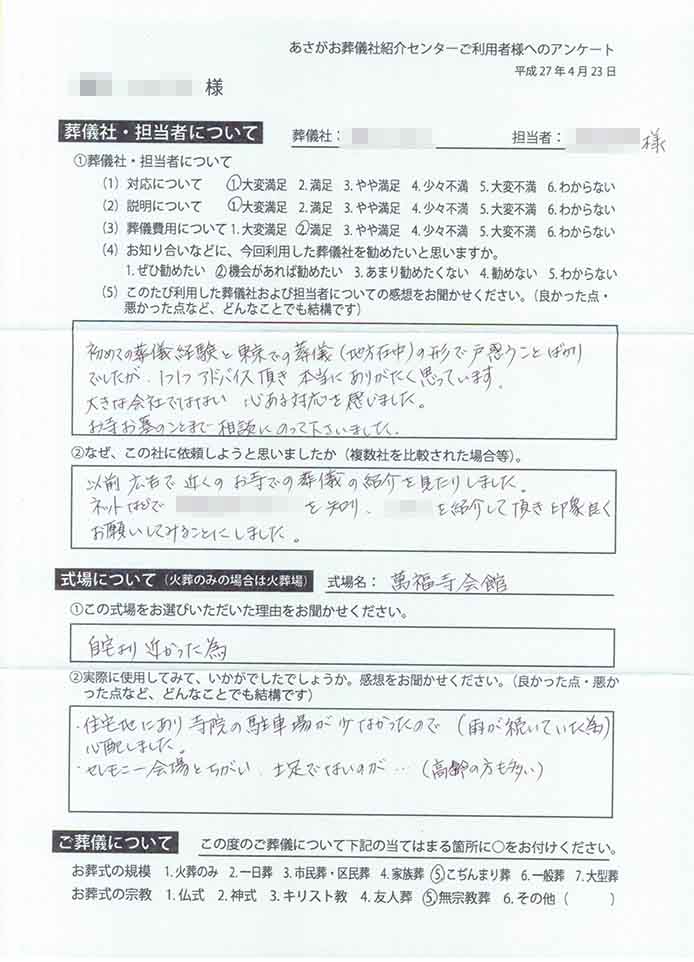 あさがお葬儀社紹介センターご利用者様へのアンケート
平成27年4月23日
様
葬儀社・担当者について 葬儀社: 担当者: 様
①葬儀社・担当者について
(1) 対応について ①大変満足 2.満足 3.やや満足 4.少々不満 5.大変不満 6.わからない
(2) 説明について ①大変満足 2.満足 3.やや満足 4.少々不満 5.大変不満 6.わからない
(3) 葬儀費用について 1.大変満足 ②満足 3.やや満足 4.少々不満 5.大変不満 6.わからない
(4) お知り合いなどに、今回利用した葬儀社を勧めたいと思いますか。
1.ぜひ勧めたい ②機会があれば勧めたい 3.あまり勧めたくない 4.勧めない 5.わからない
(5) このたび利用した葬儀社および担当者についての感想をお聞かせください。(良かった点・
悪かった点など、どんなことでも結構です)
初めての葬儀経験と東京での葬儀(地方在中)の形で戸惑うことばかり
でしたが、1つ1つアドバイス頂き本当にありがたく思っています。
大きな会社ではない 心ある対応を感じました。
お寺お墓のことまで相談にのって下さいました。
②なぜ、この社に依頼しようと思いましたか(複数社を比較された場合等)。
以前 広告で近くのお寺での葬儀の紹介を見たりしました。
ネットなどで を知り、 を紹介して頂き印象良く
お願いしてみることにしました。
式場について(火葬のみの場合は火葬場) 式場名: 萬福寺会館
①この式場をお選びいただいた理由をお聞かせください。
自宅より近かった為
②実際に使用してみて、いかがでしたでしょうか。感想をお聞かせください。(良かった点・悪か
った点など、どんなことでも結構です)
・住宅地にあり寺院の駐車場が少なかったので(雨が続いていた為)
心配しました。
・セレモニー会場とちがい、土足でないのが…(高齢の方も多い)
ご葬儀について この度のご葬儀について下記の当てはまる箇所に○をお付けください。
お葬式の規模 1.火葬のみ 2.一日葬 3.市民葬・区民葬 4.家族葬 ⑤こぢんまり葬 6.一般葬 7.大型葬
お葬式の宗教 1.仏式 2.神式 3.キリスト教 4.友人葬 ⑤無宗教葬 6.その他( )